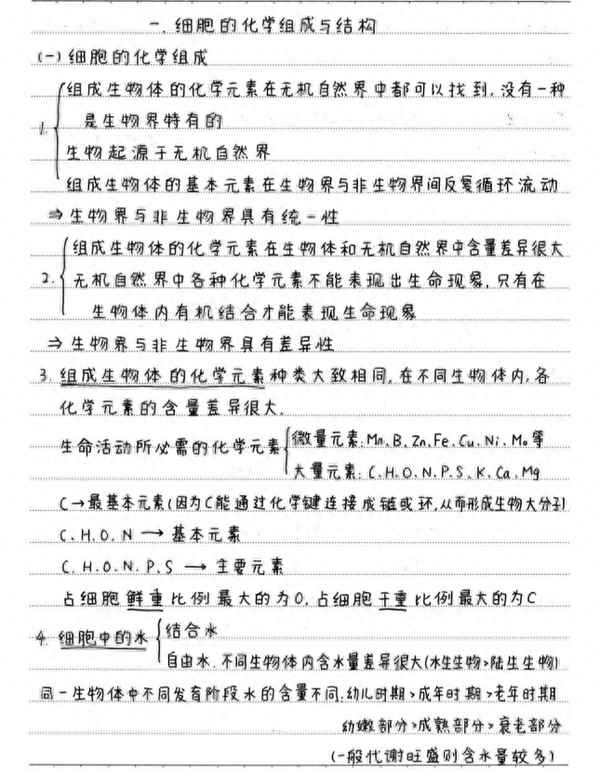 一. 细胞的化学组成与结构
(一) 细胞的化学组成
组成生物体的化学元素在无机自然界中都可以找到, 没有一种
1. 是生物界特有的
生物起源于无机自然界
组成生物体的基本元素在生物界与非生物界间反复循环流动
⇒ 生物界与非生物界具有统一性
组成生物体的化学元素在生物体和无机自然界中含量差异很大
2. 无机自然界中各种化学元素不能表现出生命现象, 只有在
生物体内有机结合才能表现生命现象
⇒ 生物界与非生物界具有差异性
3. 组成生物体的化学元素种类大致相同, 在不同生物体内, 各
化学元素的含量差异很大.
生命活动所必需的化学元素 微量元素: Mn、B、Zn、Fe、Cu、Ni、Mo等
大量元素: C、H、O、N、P、S、K、Ca、Mg
C→最基本元素(因为C能通过化学键连接成链或环, 从而形成生物大分子)
C、H、O、N → 基本元素
C、H、O、N、P、S → 主要元素
占细胞鲜重比例最大的为O, 占细胞干重比例最大的为C
4. 细胞中的水 结合水
自由水. 不同生物体内含水量差异很大(水生生物>陆生生物)
同一生物体中不同发育阶段水的含量不同: 幼儿时期>成年时期>老年时期
幼嫩部分>成熟部分>衰老部分
(一般代谢旺盛则含水量较多)